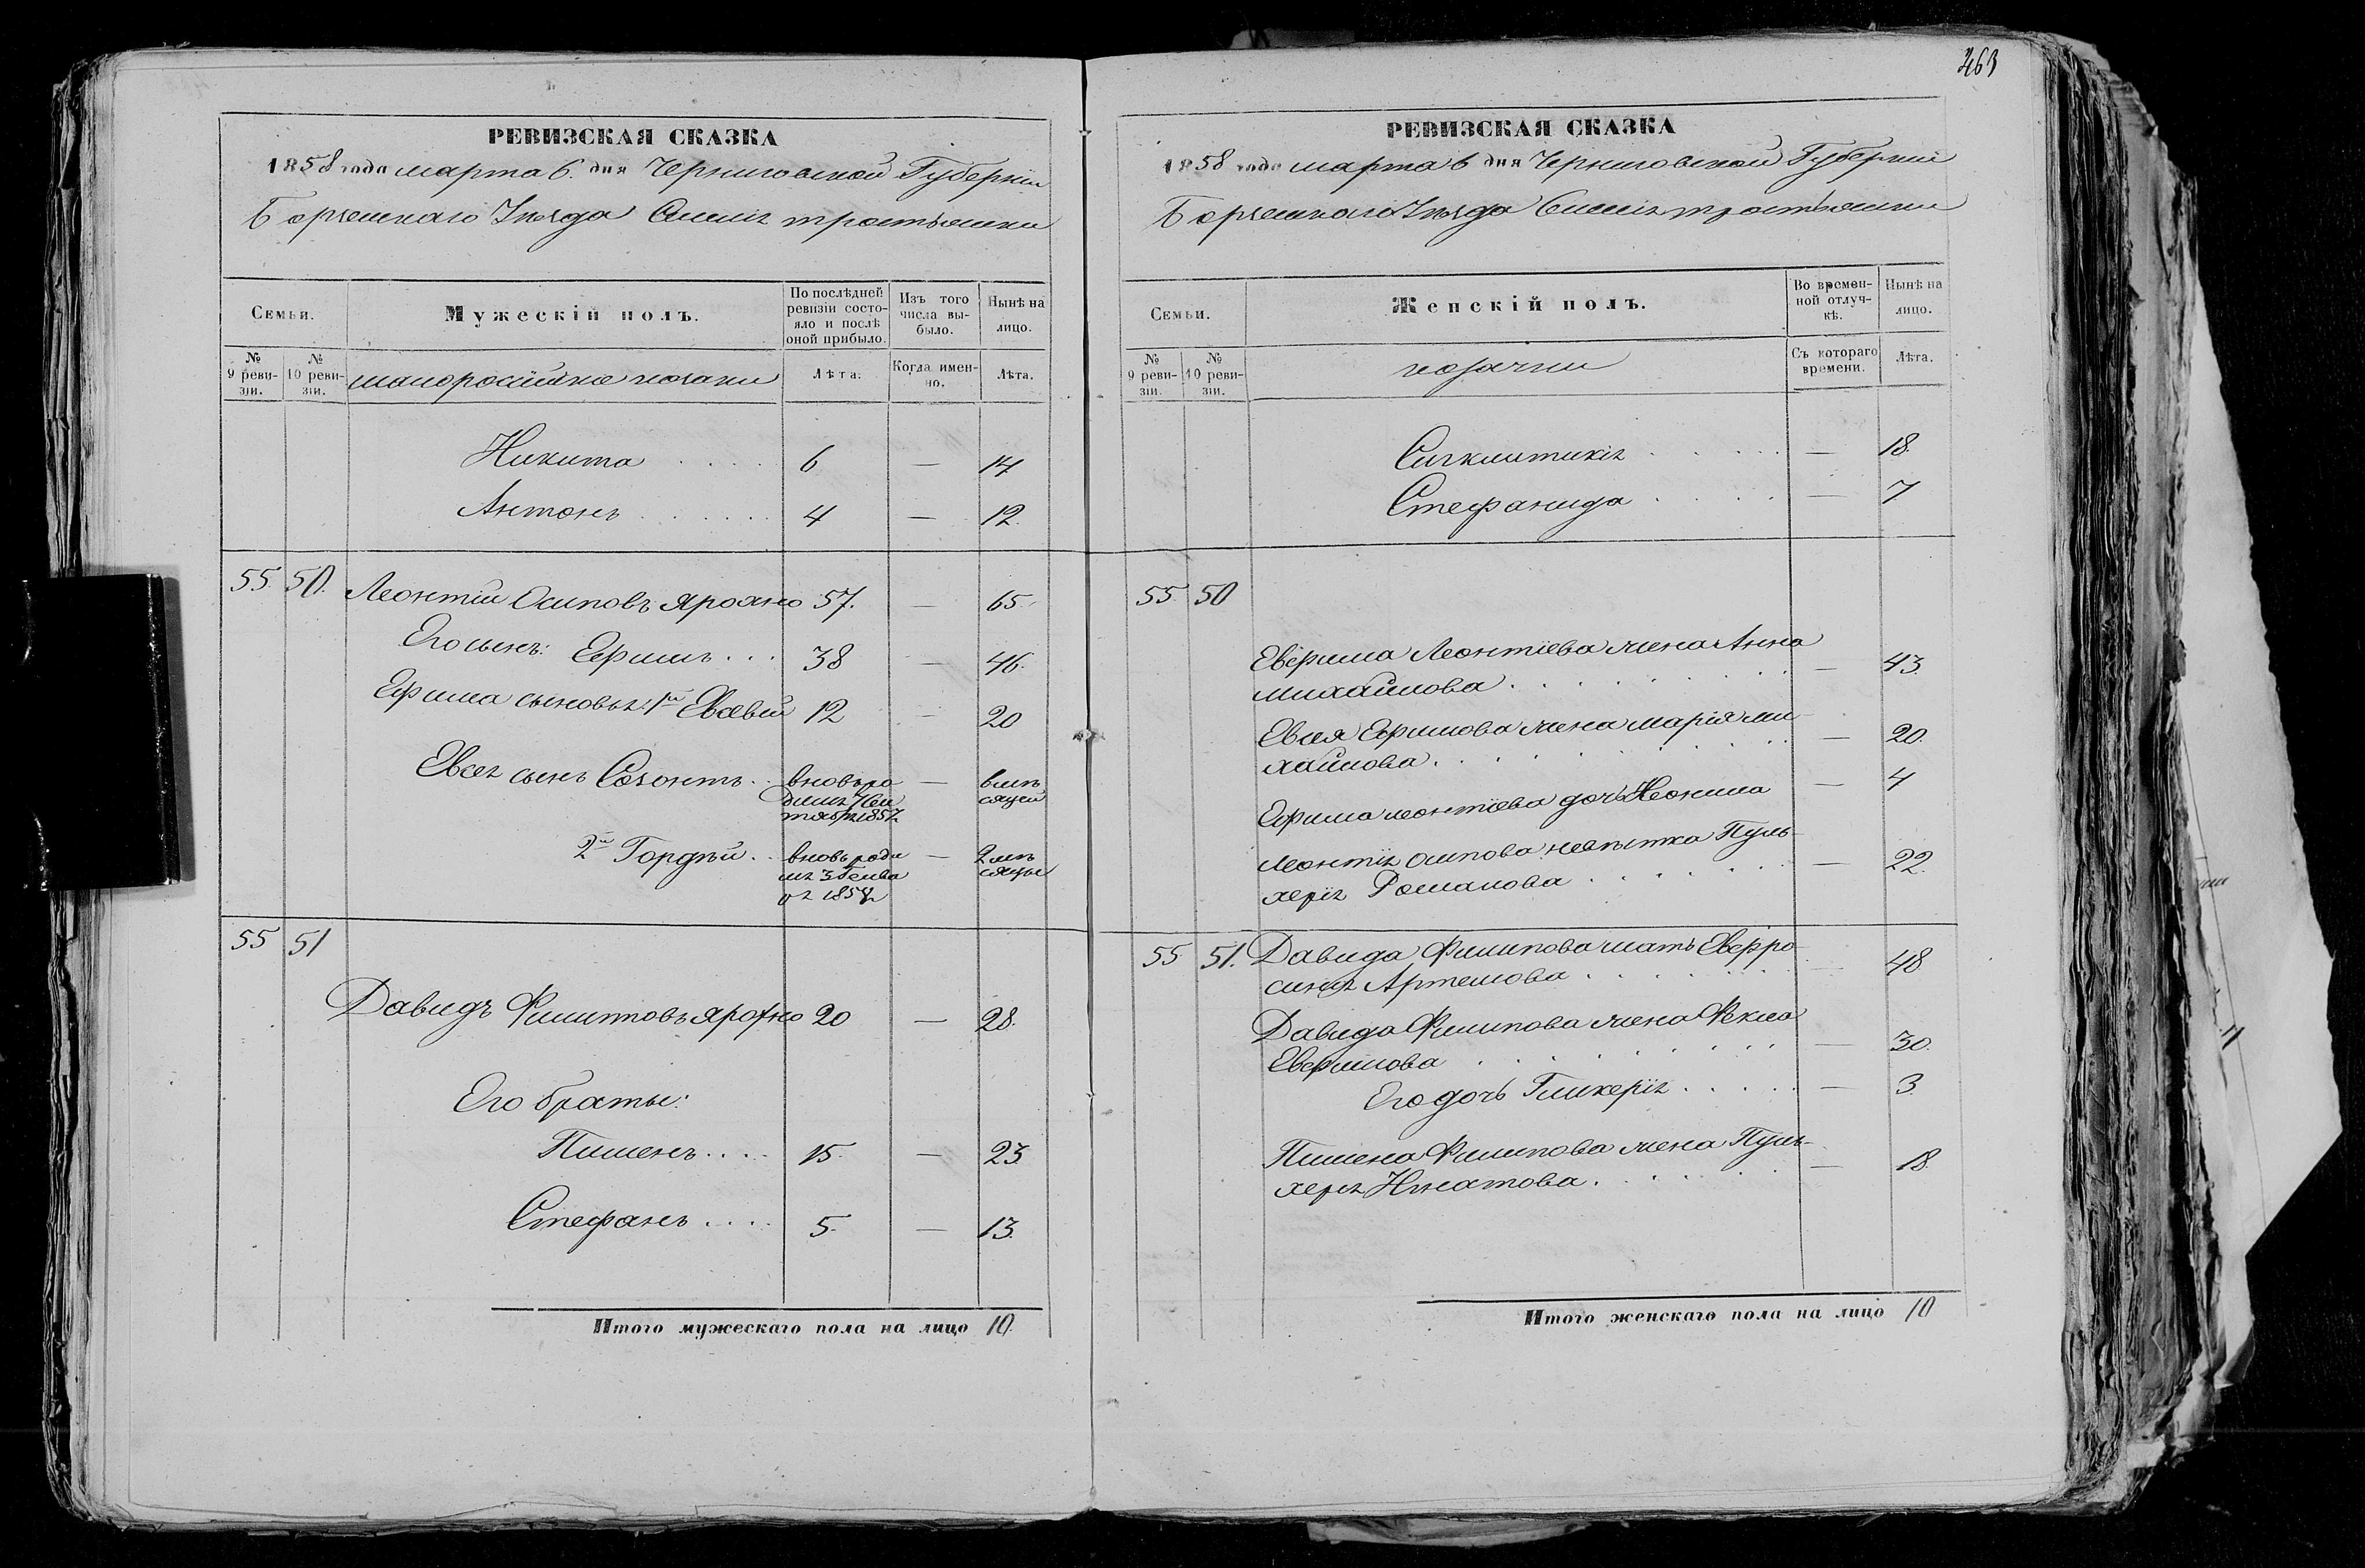 РЕВИЗСКАЯ СКАЗКА
1858 года марта 6. дня Черниговской Губерніи
Борзенскаго Уѣзда Селенія
Семьи.
Мужескій полъ.
По послѣдней ревизіи состояло и послѣ оной прибыло.
Изъ того числа выбыло.
Нынѣ на лицо.
№ 9 ревизіи.
№ 10 ревизіи.
малоросійскіе козаки
Лѣта.
Когда именно.
Лѣта.
Никита . . . . 6 — 14
Антонъ . . . . . . 4 — 12.
55. 50. Леонтій Осиповъ 57. — 65.
Его сынъ: Ефимъ . . . 38 — 46.
Ефима сыновья: 1й Евсевій 12 — 20
Евсея сынъ Созонтъ . . вновь ро — 6 мѣ
дился
сяцей
1857
2й Гордѣй . . вновь роди — 2 мѣ
сяцы
55 51
Давидъ Филиповъ 20 — 28.
Его братья:
Пименъ . . . . 15. — 23.
Стефанъ . . . . 5. — 13.
Итого мужескаго пола на лицо 10.
463
РЕВИЗСКАЯ СКАЗКА
1858 года марта 6 дня Черниговской Губерніи
Борзенскаго Уѣзда Селенія
Семьи.
Женскій полъ.
Во временной отлучкѣ.
Нынѣ на лицо.
№ 9 ревизіи.
№ 10 ревизіи.
козачки
Съ котораго времени.
Лѣта.
Сигклитикія . . . . . — 18.
Стефанида . . . . — 7
55. 50
Евфима Леонтіева жена Анна
михайлова . . . . . . . . — 43.
Евсея Ефимова жена марія ми-
хайлова . . . . . . . . — 20.
Ефима леонтіева дочь Неонила — 4
леонтія осипова невѣстка Пуль-
херія Романова . . . . . . — 22.
55 51. Давида Филипова мать Евфро
синія Артемова . . . . . . — 48
Давида Филипова жена Фекла
Евфимова . . . . . . . . — 30.
Его дочь Гликерія . . . . . — 3.
Пимена Филипова жена Пуль-
херія Игнатова . . . . . — 18.
Итого женскаго пола на лицо 10